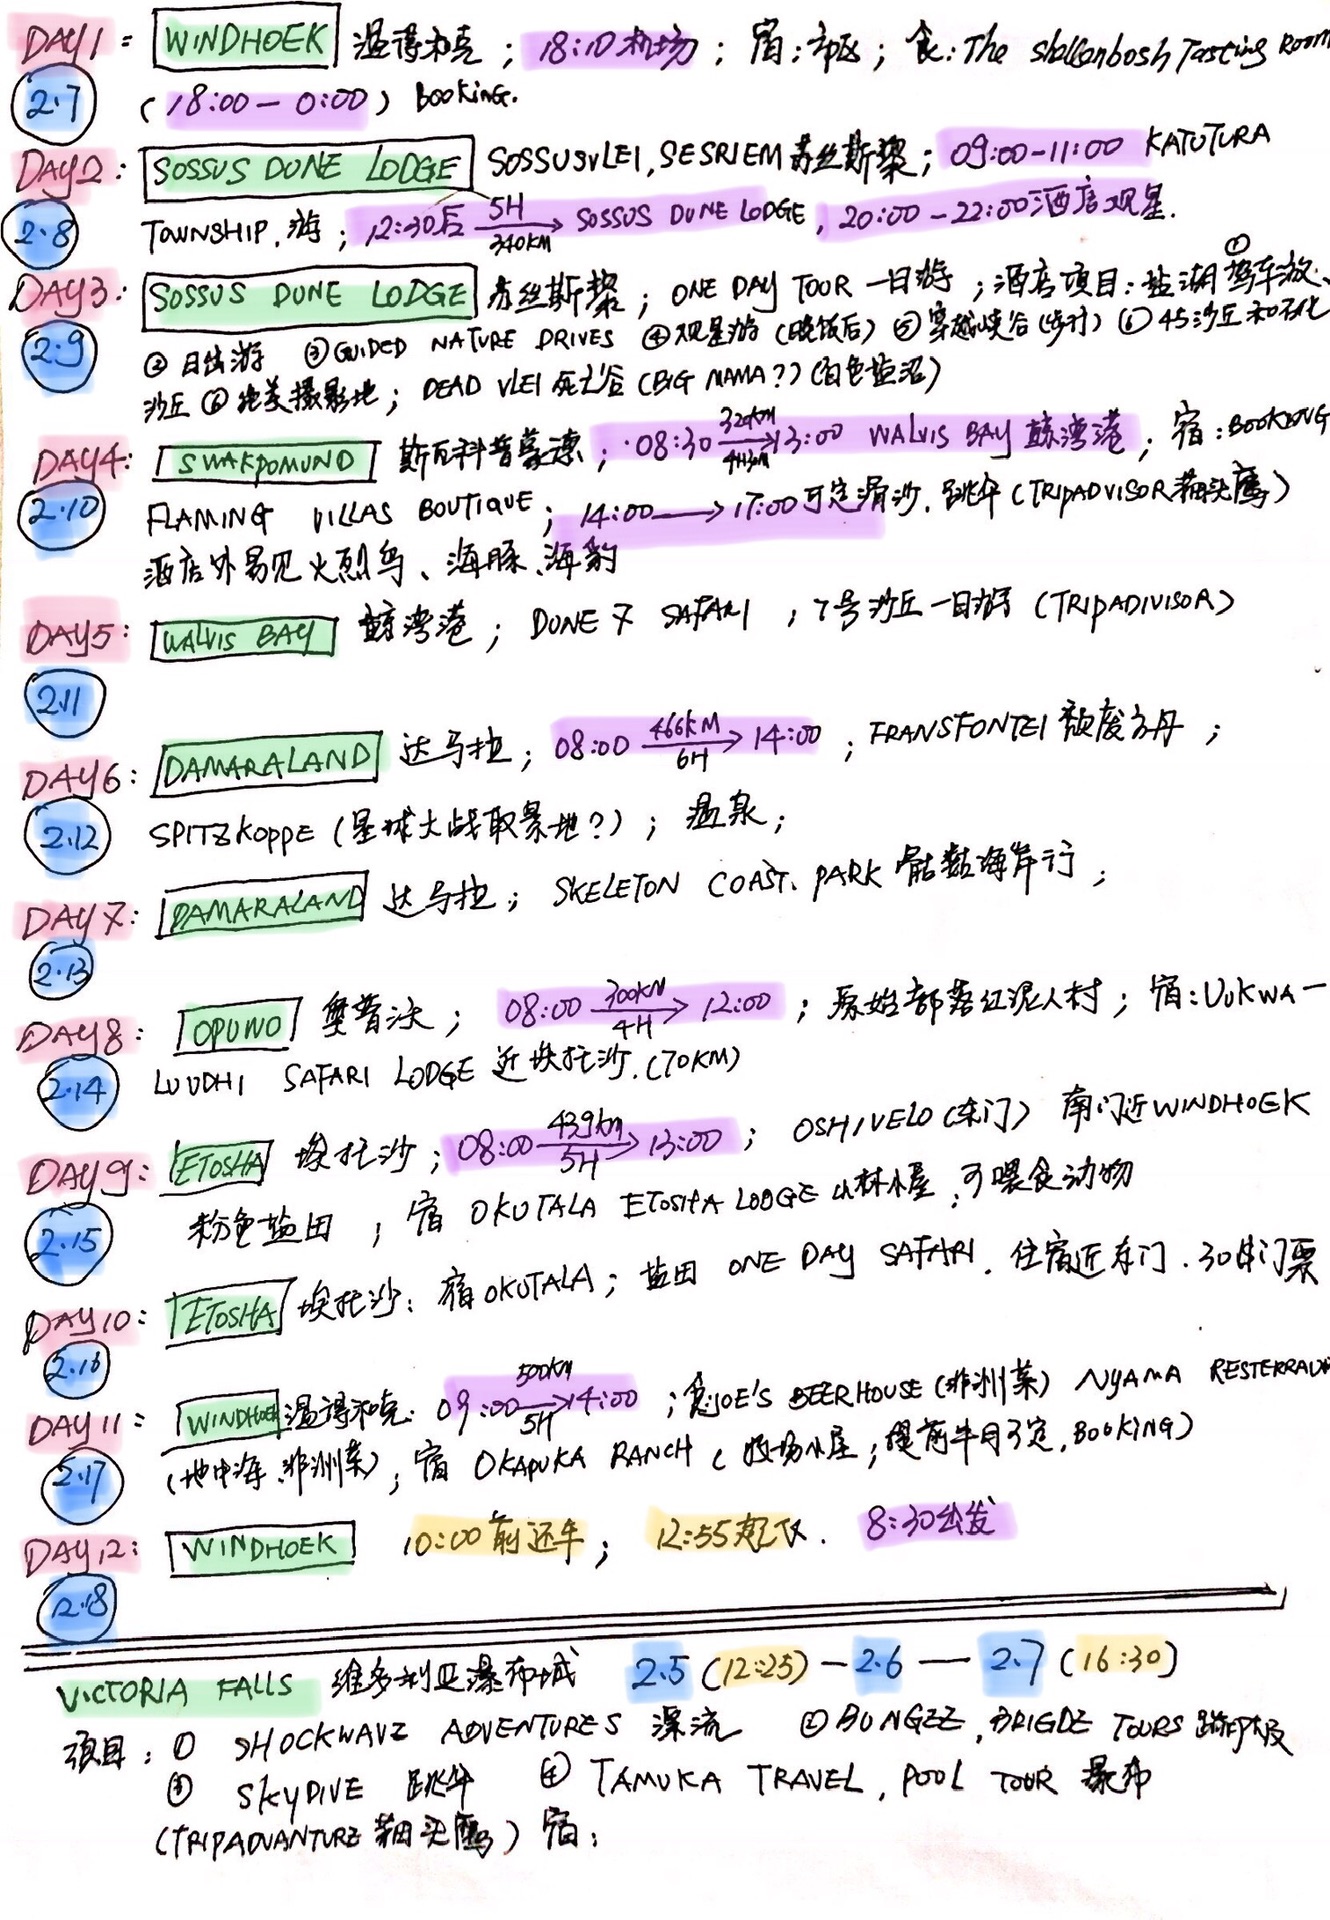 DAY1: WINDHOEK 温得和克; 18:10机场; 宿:市区; 食: The Shellenbosh Tasting Room
2.7 (18:00—0:00) Booking.
DAY2: SOSSUS DUNE LODGE SOSSUSVLEI, SESRIEM 苏丝斯黎; 09:00-11:00 KATUTURA
2.8 TOWNSHIP, 游; 12:30后 5H 340KM → SOSSUS DUNE LODGE, 20:00-22:00酒店观星.
DAY3: SOSSUS DUNE LODGE 苏丝斯黎; ONE DAY TOUR 一日游; 酒店项目: ①盐湖驾车游、
2.9 ②日出游 ③GUIDED NATURE DRIVES ④观星游(晚饭后) ⑤穿越峡谷(步行) ⑥45沙丘和石化
沙丘 ⑥绝美摄影地; DEAD VLEI 死亡谷 (BIG MAMA??) (白色盐沼)
DAY4: SWAKPOMUND 斯瓦科普蒙德; 08:30 320KM → 13:00 WALVIS BAY 鲸湾港; 宿: BOOKING
2.10 FLAMING VILLAS BOUTIQUE; 14:00 → 17:00可定滑沙.跳伞(TRIPADVISOR 猫头鹰)
酒店外易见火烈鸟、海豚、海豹
DAY5: WALVIS BAY 鲸湾港; DUNE 7 SAFARI; 7号沙丘一日游 (TRIPADIVISOR)
2.11
DAY6: DAMARALAND 达马拉; 08:00 466KM 6H → 14:00; FRANSFONTEI
2.12 SPITZKOPPE (星球大战取景地?); 温泉;
DAY7: DAMARALAND 达马拉; SKELETON COAST. PARK 骷髅海岸行;
2.13
DAY8: OPUWO 奥普沃; 08:00 300KM 4H → 12:00; 原始部落红泥人村; 宿: UUKWA-
2.14 LUUDHI SAFARI LODGE 近埃托沙.(70KM)
DAY9: ETOSHA 埃托沙; 08:00 439km 5H → 13:00; OSHIVELO (东门) 南门近WINDHOEK
2.15 粉色盐田; 宿 OKUTALA ETOSHA LODGE 山林小屋, 可喂食动物
DAY10: ETOSHA 埃托沙: 宿OKUTALA; 盐田 ONE DAY SAFARI. 住宿近东门.
2.16
DAY11: WINDHOEK 温得和克. 09:00 500KM 5H → 14:00; 食JOE'S BEERHOUSE (非洲菜) NYAMA RESTERRAUN
2.17 (地中海.非洲菜); 宿 OKAPUKA RANCH (牧场小屋; 提前半月可定, BOOKING)
DAY12: WINDHOEK 10:00前还车; 12:55起飞. 8:30出发
2.18
VICTORIA FALLS 维多利亚瀑布城 2.5 (12:25) — 2.6 — 2.7 (16:30)
项目: ① SHOCKWAVE ADVENTURES 漂流 ② BUNGEE, BRIGDE TOURS 蹦极
③ SKYDIVE 跳伞 ④ TAMUKA TRAVEL, POOL TOUR 瀑布
(TRIPADVANTURE 猫头鹰) 宿: